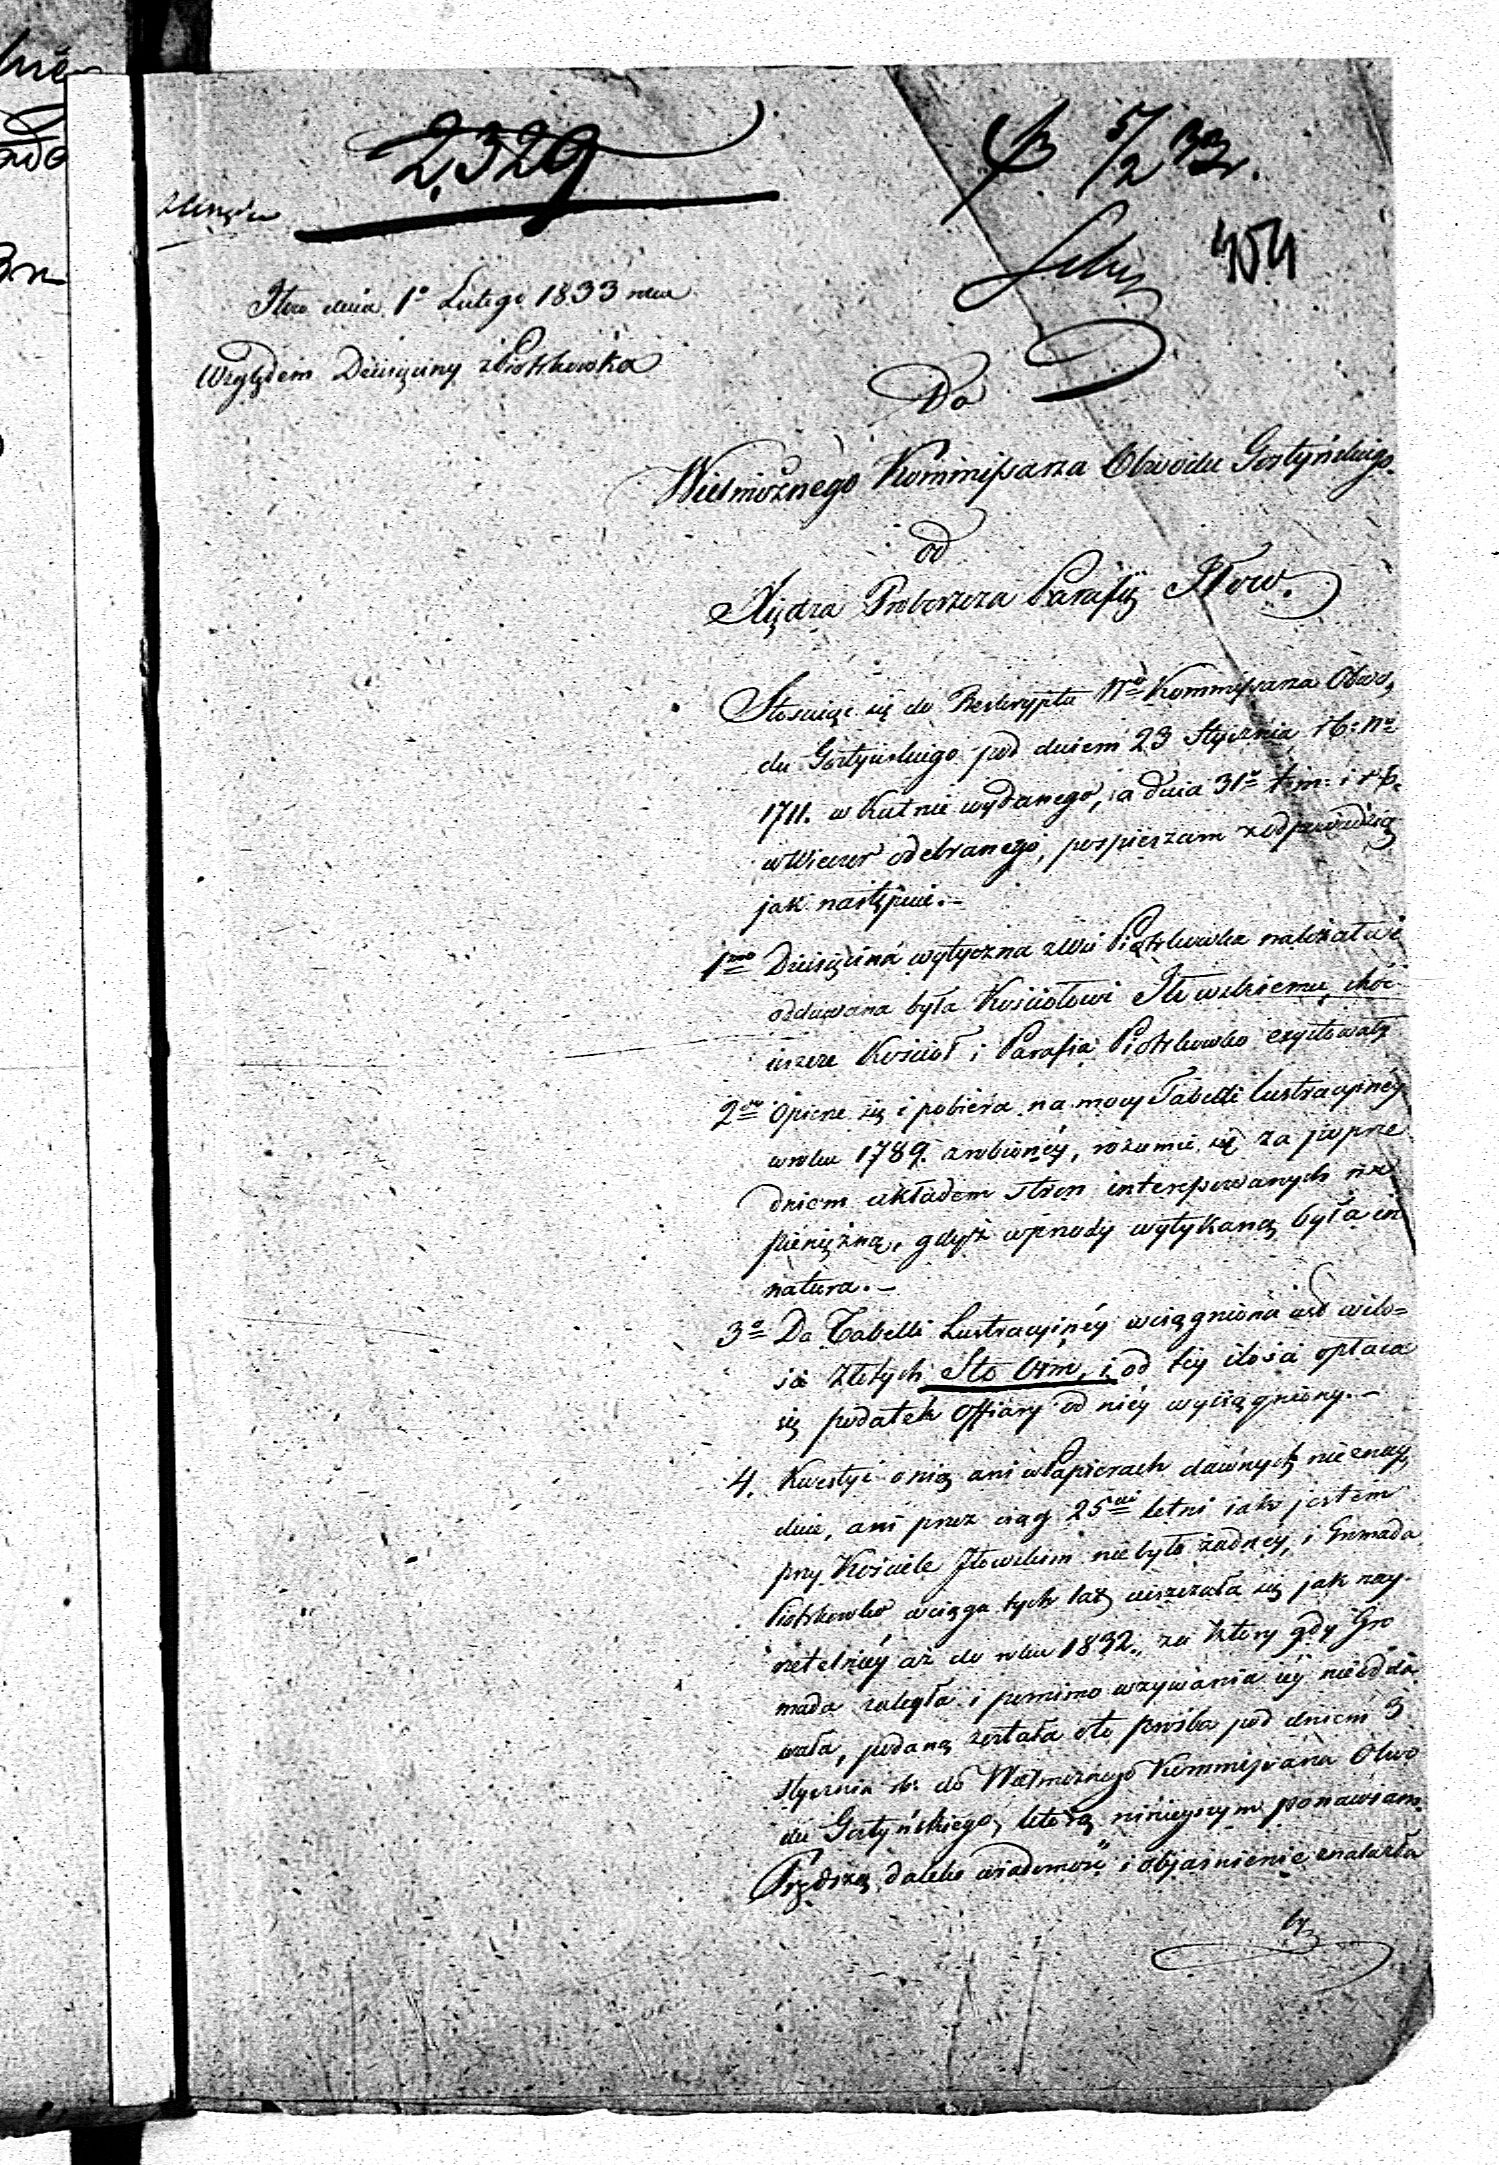 2,329
5/2 33.
454
Iłow dnia 1º Lutego 1833 roku
Względem Dziesięciny z Piotrkowka
Do
Wielmożnego Kommissarza Obwodu Gostyńskiego
od
Xiędza Proboszcza Parafij Iłow.
Stosując się do Reskryptu Wº Kommissarza Obwo
du Gostyńskiego pod dniem 23 Stycznia rb: Nº
1711. w Kutnie wydanego, a dnia 31º t.m: i r.b.
wWieczor odebranego, pospieszam z odpowiedzią
jak następuie.-
1mo Dziesięcina wytyczna zWsi Piotrkowka należała i
oddawana była Kościołowi Iłowskiemu, choć
ieszcze Kościoł i Parafia Piotrkowko exystowały
2do Opiera się i pobiera na mocy Tabelli Lustracyinéy
w roku 1789. zrobionéy, rozumie się za poprze
dniem układem stron interessowanych na
pieniężną, gdyż wprzody wytykaną była in
natura.-
3º Do Tabelli Lustracyinéy wciągniona iest w ilo=
ści Złotych Sto Ośm, i od téy ilości opłaca
się podatek Offiary od niéy wyciągniony.-
4. Kwestyi o nią ani w Papierach dawnych nieznay
duie, ani przez ciąg 25cio letni iak jestem
przy Kościele Iłowskim nie było żadnéy, i Gromada
Piotrkowko wciągu tych lat uiszczała się jak nay-
rzetelniéy aż do roku 1832., za ktory gdy Gro
mada zaległa i pomimo wzywania iéy nieodda
wała, podaną została oto prośba pod dniem 3
Stycznia rb: do Wielmożnego Kommissarza Obwo
du Gostyńskiego, którą ninieyszym ponawiam.
daleko wiadomość i objaśnienie znalazła
by